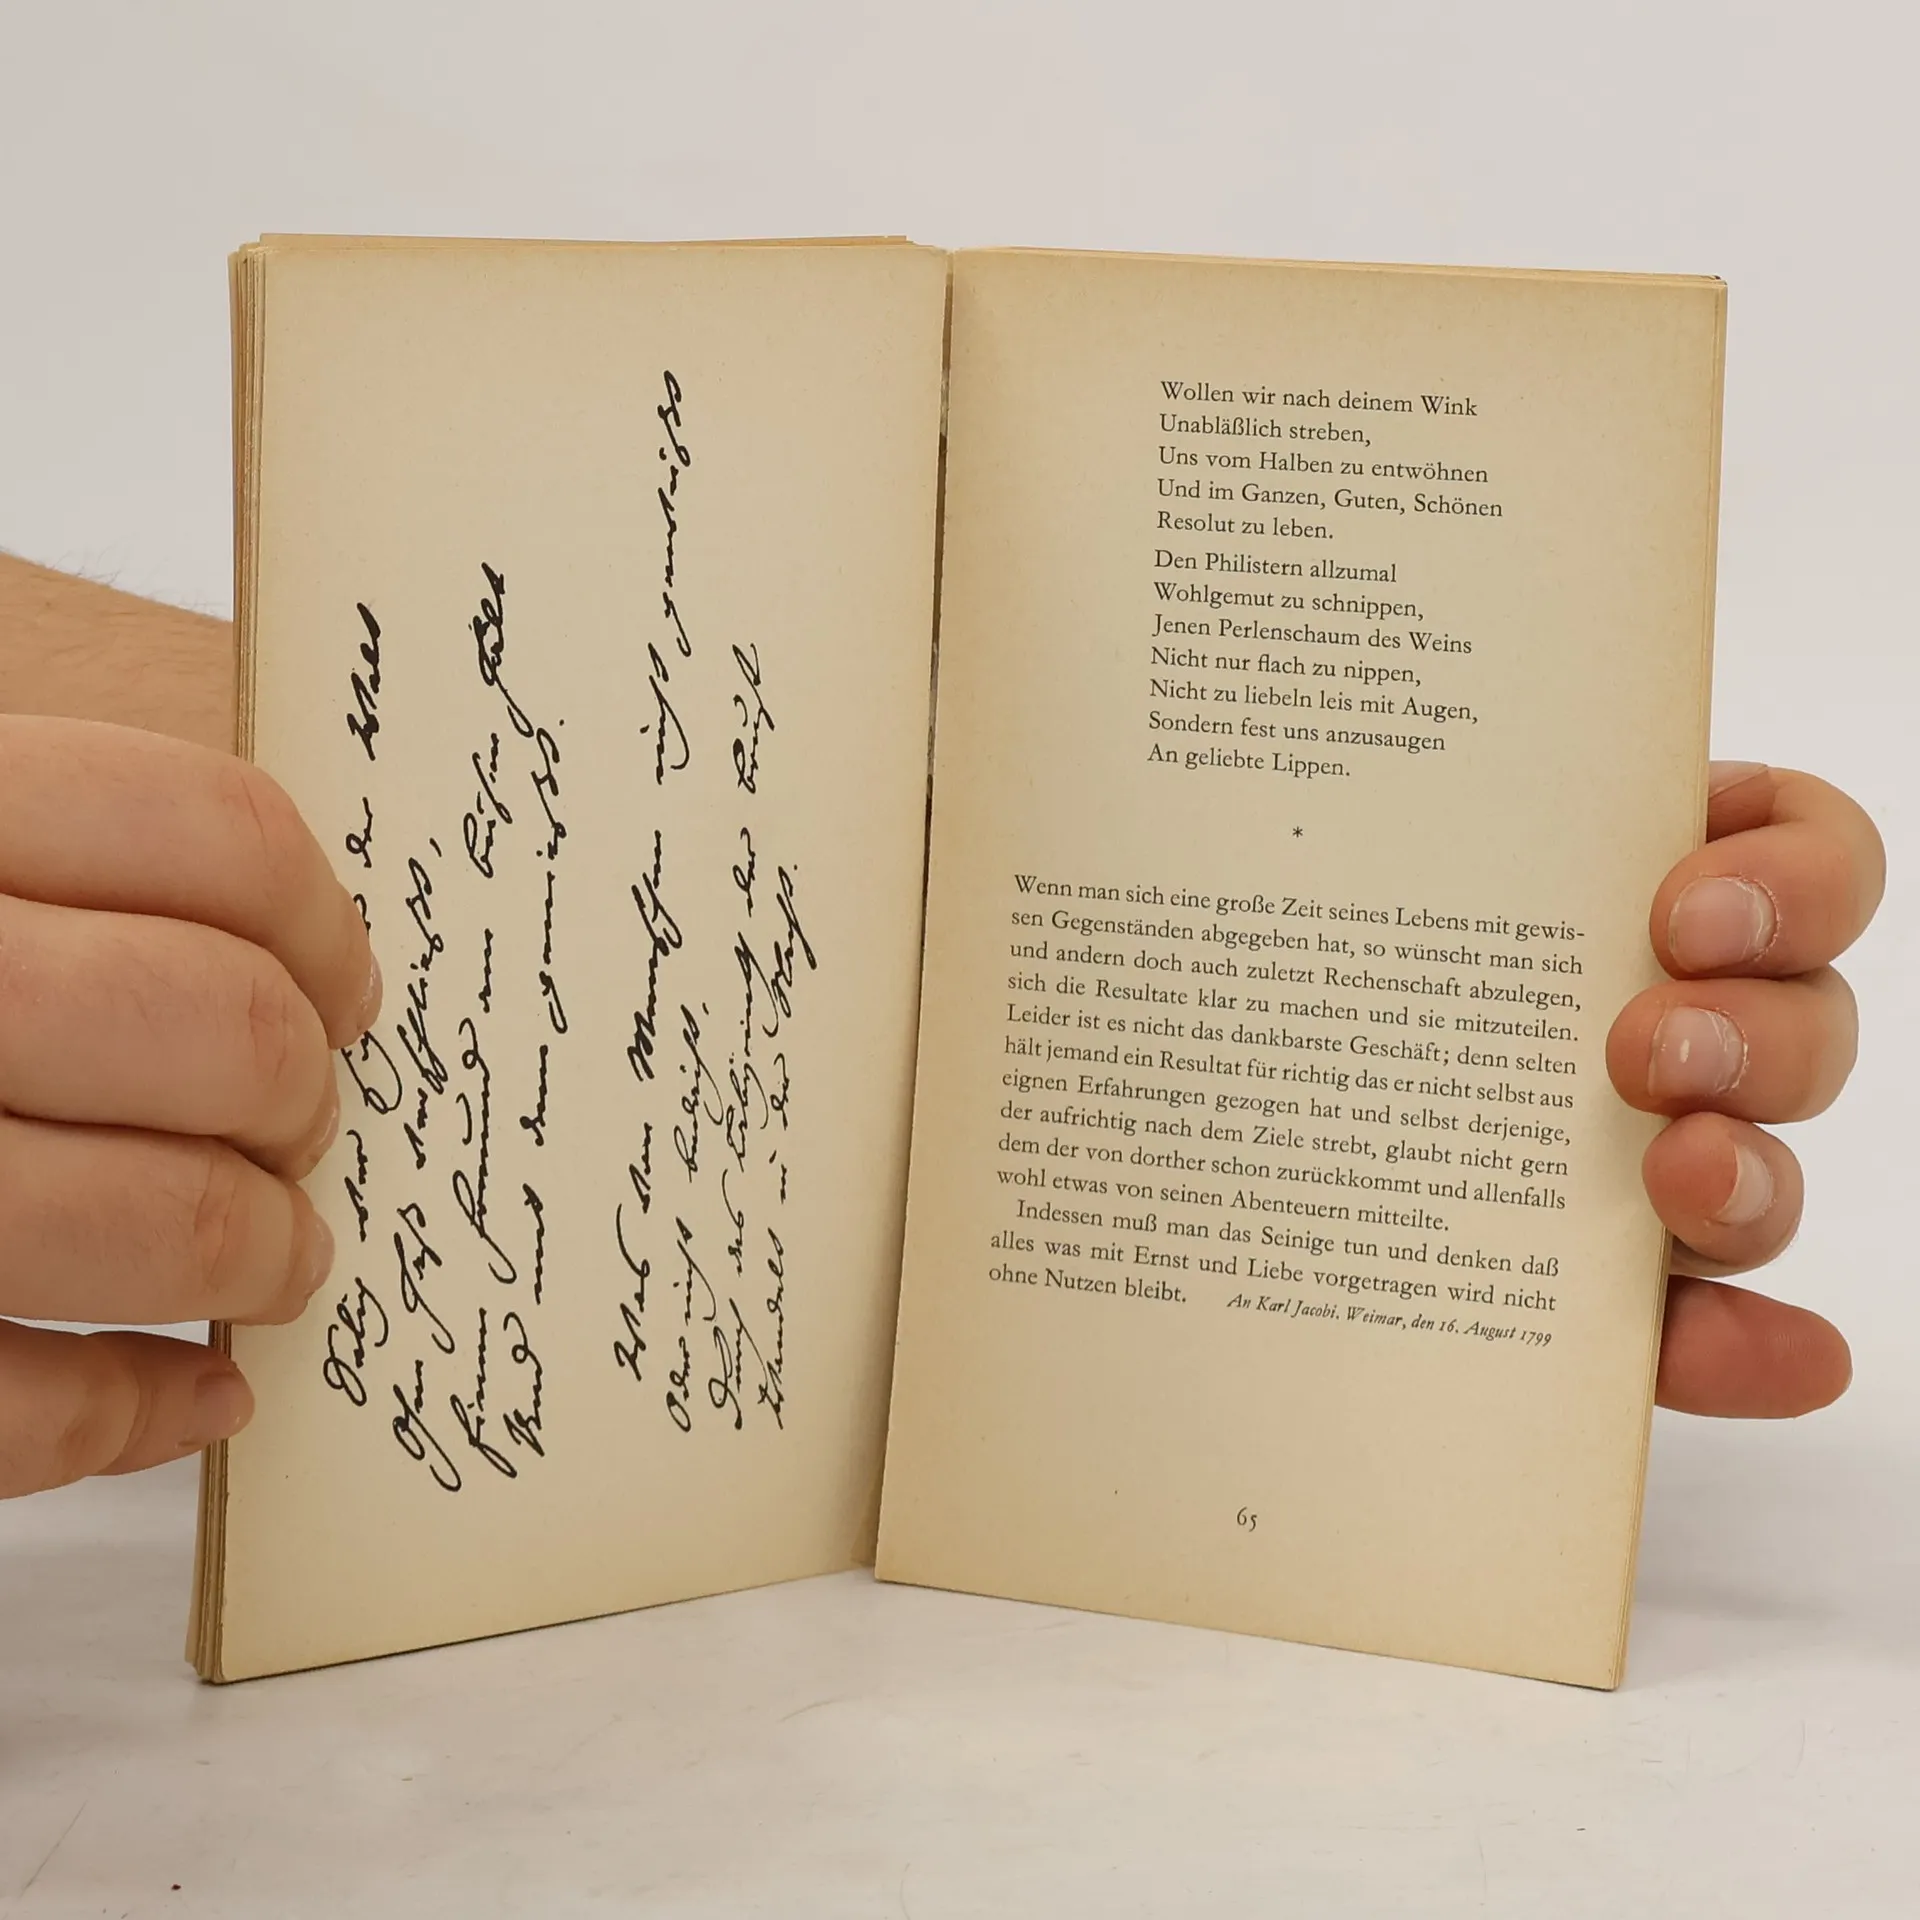 Selig wer sich der Welt
Ohne Haß verschließt,
Einen Freund am Busen hält
Und mit dem genießt.
Was von Menschen nicht gewußt
Oder nicht bedacht,
Durch das Labyrinth der Brust
Wandelt in der Nacht.
Wollen wir nach deinem Wink
Unabläßlich streben,
Uns vom Halben zu entwöhnen
Und im Ganzen, Guten, Schönen
Resolut zu leben.
Den Philistern allzumal
Wohlgemut zu schnippen,
Jenen Perlenschaum des Weins
Nicht nur flach zu nippen,
Nicht zu liebeln leis mit Augen,
Sondern fest uns anzusaugen
An geliebte Lippen.
*
Wenn man sich eine große Zeit seines Lebens mit gewis-
sen Gegenständen abgegeben hat, so wünscht man sich
und andern doch auch zuletzt Rechenschaft abzulegen,
sich die Resultate klar zu machen und sie mitzuteilen.
Leider ist es nicht das dankbarste Geschäft; denn selten
hält jemand ein Resultat für richtig das er nicht selbst aus
eignen Erfahrungen gezogen hat und selbst derjenige,
der aufrichtig nach dem Ziele strebt, glaubt nicht gern
dem der von dorther schon zurückkommt und allenfalls
wohl etwas von seinen Abenteuern mitteilte.
Indessen muß man das Seinige tun und denken daß
alles was mit Ernst und Liebe vorgetragen wird nicht
ohne Nutzen bleibt. An Karl Jacobi. Weimar, den 16. August 1799
65